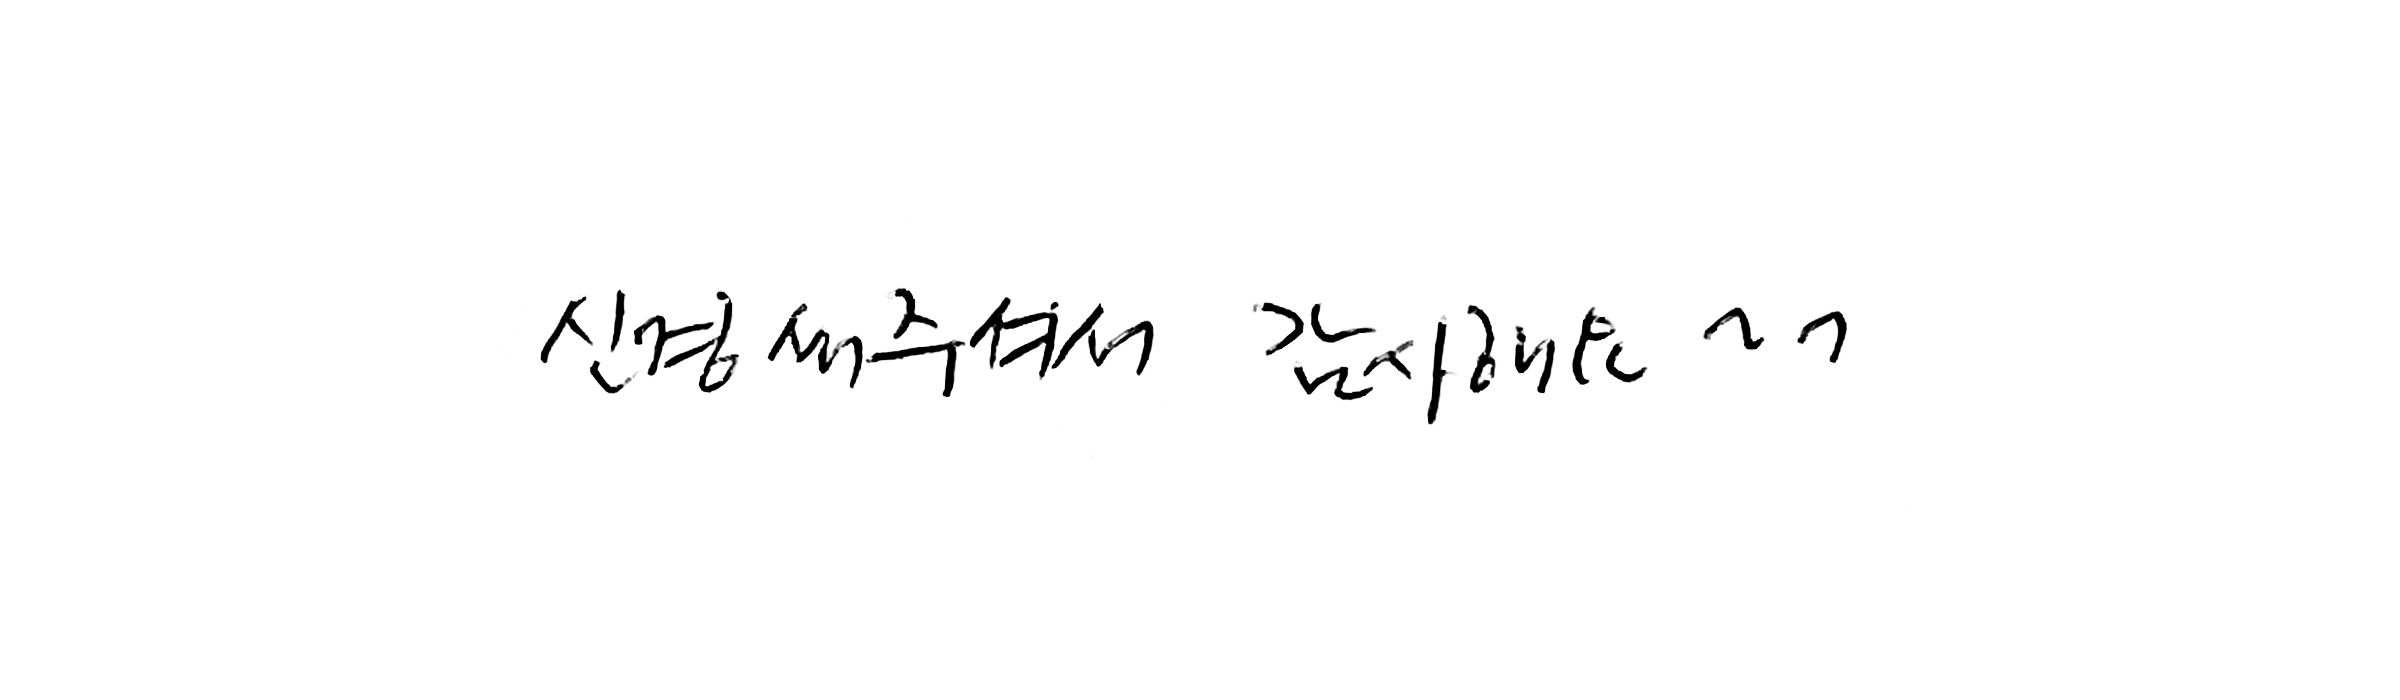 신경써주셔서 감사해요 ^^